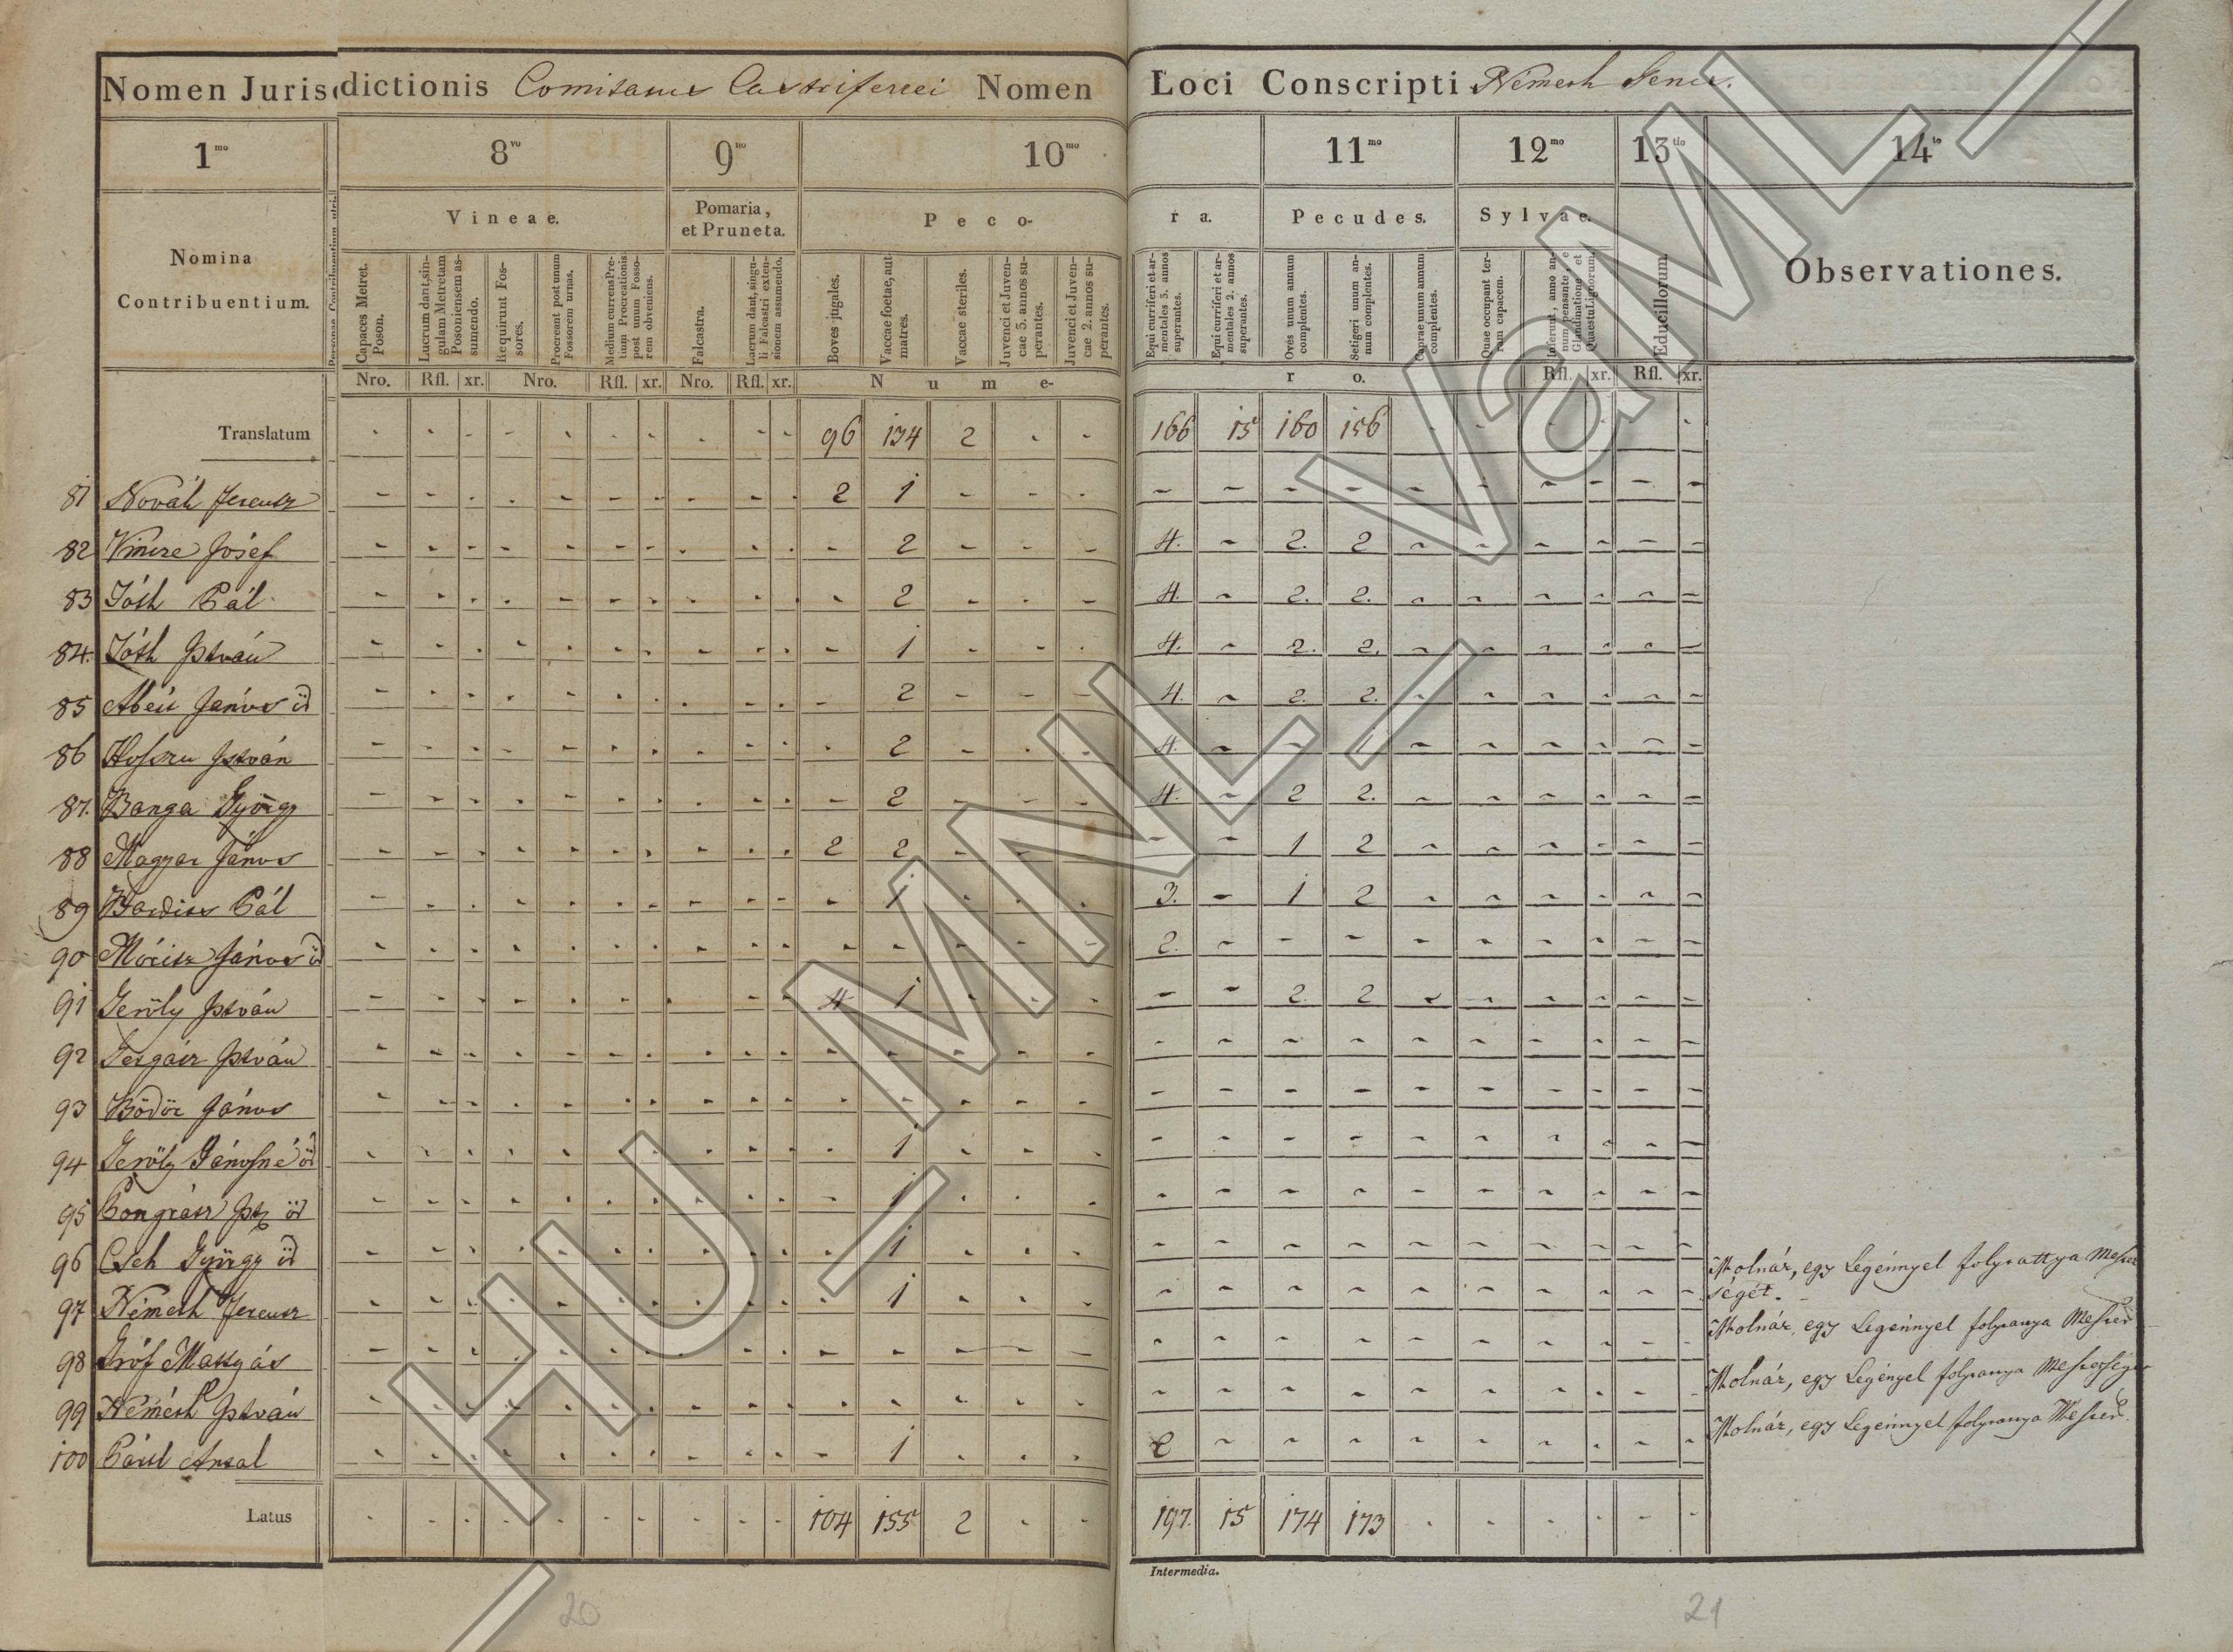 Nomen Jurisdictionis Comitatus Castriferrei Nomen Loci Conscripti Németh Gencs.
1mo 8vo 9no 10mo 11mo 12mo 13tio 14to
Nomina Contribuentium.
Vineae.
Pomaria, et Pruneta.
Pecora.
Pecudes.
Sylvae.
Educillorum.
Observationes.
Capaces Metret. Poson.
Lucrum dant, singulam Metretam Posoniensem assumendo.
Requirunt Fossores.
Procreant post unum Fossorem urnas.
Medium currens Pretium Procreationis post unum Fossorem obveniens.
Falcastra.
Lucrum dant, singuli Falcastri extensionem assumendo.
Boves jugales.
Vaccae foetae, aut matres.
Vaccae steriles.
Juvenci et Juvencae 3. annos superantes.
Juvenci et Juvencae 2. annos superantes.
Equi curriferi et armentales 3. annos superantes.
Equi curriferi et armentales 2. annos superantes.
Oves unum annum complentes.
Setigeri unum annum complentes.
Caprae unum annum complentes.
Quae occupant terram capacem.
Nro. Rfl. xr. Nro. Rfl. xr. Nro. Rfl. xr. Numero. Rfl. xr. Rfl. xr.
Translatum - - - - - - - - - - 96 134 2 - - 166 15 160 156 - - - - - -
81 Novák Ferencz 2 1
82 Vincze Jósef - 2 - - - 4. - 2. 2
83 Tóth Pál - 2 - - - 4. - 2. 2.
84. Tóth István - 1 - - - 4. - 2. 2.
85 János öd - 2 - - - 4. - 2. 2.
86 Hoszu István - 2 - - - 4. - - 1
87. Banga György - 2 - - - 4. - 2 2.
88 Magyar János 2 2 - - - - - 1 2
89 Pál - 1 - - - 3. - 1 2
90 Móricz János öd - - - - - 2.
91 Geröly István 4 1 - - - - - 2 2
92 István
93 Bödör János
94 Geröly Jánosné öd - 1
95 Pongrácz öd - 1
96 Cseh György öd - 1
97 Németh Ferencz - 1 Molnár, egy Legénnyel folytattya Mester
ségét.
98 Gróf Mattyás Molnár, egy Legénnyel
99 Németh István Molnár, egy Legényel
100 Antal - 1 - - - 2 Molnár, egy Legénnyel
Latus 104 155 2 - - 197. 15 174 173
Intermedia.
20 21
HU_MNL_VaML_